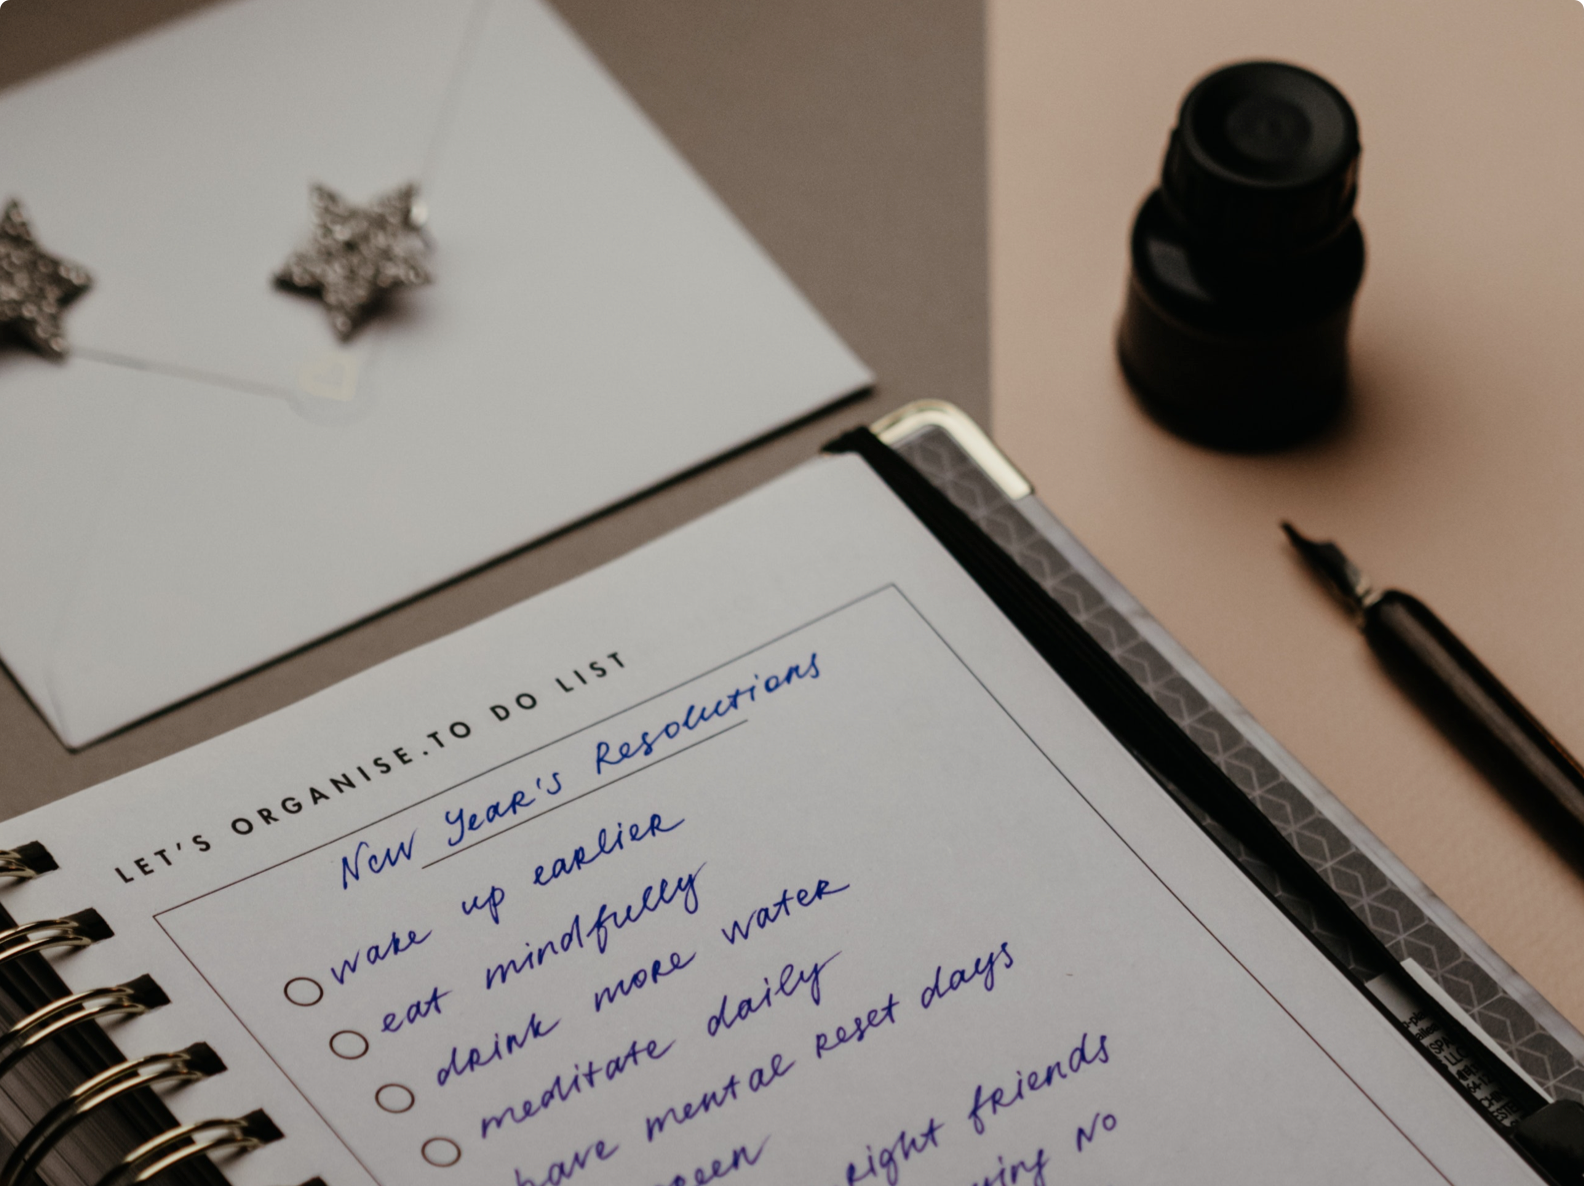 LET'S ORGANISE.TO DO LIST
New Year's Resolutions
wake up earlier
eat mindfully
drink more water
meditate daily
have mental reset days
right friends
NO